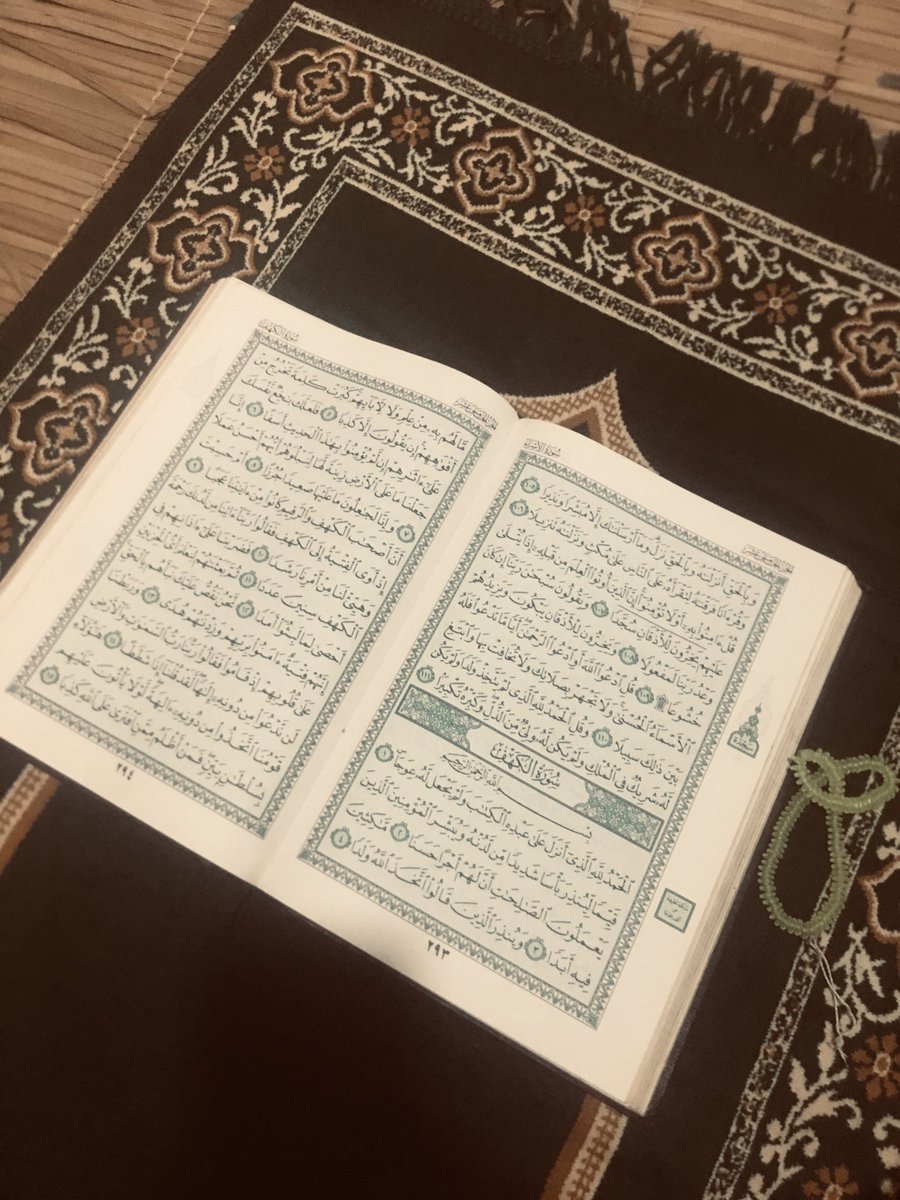 سُورَةُ الإِسْرَاءِ
الجُزْءُ الخَامِسَ عَشَرَ
وَبِٱلْحَقِّ أَنزَلْنَٰهُ وَبِٱلْحَقِّ نَزَلَ وَمَآ أَرْسَلْنَٰكَ إِلَّا مُبَشِّرًا وَنَذِيرًا ١٠٥
وَقُرْءَانًا فَرَقْنَٰهُ لِتَقْرَأَهُۥ عَلَى ٱلنَّاسِ عَلَىٰ مُكْثٍ وَنَزَّلْنَٰهُ تَنزِيلًا ١٠٦
قُلْ ءَامِنُوا۟ بِهِۦٓ أَوْ لَا تُؤْمِنُوٓا۟ إِنَّ ٱلَّذِينَ أُوتُوا۟ ٱلْعِلْمَ مِن قَبْلِهِۦٓ إِذَا يُتْلَىٰ
عَلَيْهِمْ يَخِرُّونَ لِلْأَذْقَانِ سُجَّدًا ١٠٧ وَيَقُولُونَ سُبْحَٰنَ رَبِّنَآ إِن كَانَ
وَعْدُ رَبِّنَا لَمَفْعُولًا ١٠٨ وَيَخِرُّونَ لِلْأَذْقَانِ يَبْكُونَ وَيَزِيدُهُمْ
خُشُوعًا ۩ ١٠٩ قُلِ ٱدْعُوا۟ ٱللَّهَ أَوِ ٱدْعُوا۟ ٱلرَّحْمَٰنَ أَيًّا مَّا تَدْعُوا۟ فَلَهُ
ٱلْأَسْمَآءُ ٱلْحُسْنَىٰ وَلَا تَجْهَرْ بِصَلَاتِكَ وَلَا تُخَافِتْ بِهَا وَٱبْتَغِ
بَيْنَ ذَٰلِكَ سَبِيلًا ١١٠ وَقُلِ ٱلْحَمْدُ لِلَّهِ ٱلَّذِى لَمْ يَتَّخِذْ وَلَدًا وَلَمْ يَكُن
لَّهُۥ شَرِيكٌ فِى ٱلْمُلْكِ وَلَمْ يَكُن لَّهُۥ وَلِىٌّ مِّنَ ٱلذُّلِّ وَكَبِّرْهُ تَكْبِيرًا ١١١
سُورَةُ الْكَهْفِ
بِسْمِ ٱللَّهِ ٱلرَّحْمَٰنِ ٱلرَّحِيمِ
ٱلْحَمْدُ لِلَّهِ ٱلَّذِىٓ أَنزَلَ عَلَىٰ عَبْدِهِ ٱلْكِتَٰبَ وَلَمْ يَجْعَل لَّهُۥ عِوَجَا ١
قَيِّمًا لِّيُنذِرَ بَأْسًا شَدِيدًا مِّن لَّدُنْهُ وَيُبَشِّرَ ٱلْمُؤْمِنِينَ ٱلَّذِينَ
يَعْمَلُونَ ٱلصَّٰلِحَٰتِ أَنَّ لَهُمْ أَجْرًا حَسَنًا ٢ مَّٰكِثِينَ
فِيهِ أَبَدًا ٣ وَيُنذِرَ ٱلَّذِينَ قَالُوا۟ ٱتَّخَذَ ٱللَّهُ وَلَدًا ٤
سجدة
٢٩٣
سُورَةُ الكَهْفِ
الجُزْءُ الخَامِسَ عَشَرَ
مَّا لَهُم بِهِۦ مِنْ عِلْمٍ وَلَا لِءَابَآئِهِمْ كَبُرَتْ كَلِمَةً تَخْرُجُ مِنْ
أَفْوَٰهِهِمْ إِن يَقُولُونَ إِلَّا كَذِبًا ٥ فَلَعَلَّكَ بَٰخِعٌ نَّفْسَكَ
عَلَىٰٓ ءَاثَٰرِهِمْ إِن لَّمْ يُؤْمِنُوا۟ بِهَٰذَا ٱلْحَدِيثِ أَسَفًا ٦ إِنَّا
جَعَلْنَا مَا عَلَى ٱلْأَرْضِ زِينَةً لَّهَا لِنَبْلُوَهُمْ أَيُّهُمْ أَحْسَنُ عَمَلًا
٧ وَإِنَّا لَجَٰعِلُونَ مَا عَلَيْهَا صَعِيدًا جُرُزًا ٨ أَمْ حَسِبْتَ
أَنَّ أَصْحَٰبَ ٱلْكَهْفِ وَٱلرَّقِيمِ كَانُوا۟ مِنْ ءَايَٰتِنَا عَجَبًا ٩
إِذْ أَوَى ٱلْفِتْيَةُ إِلَى ٱلْكَهْفِ فَقَالُوا۟ رَبَّنَآ ءَاتِنَا مِن لَّدُنكَ رَحْمَةً
وَهَيِّئْ لَنَا مِنْ أَمْرِنَا رَشَدًا ١٠ فَضَرَبْنَا عَلَىٰٓ ءَاذَانِهِمْ فِى
ٱلْكَهْفِ سِنِينَ عَدَدًا ١١ ثُمَّ بَعَثْنَٰهُمْ لِنَعْلَمَ أَىُّ ٱلْحِزْبَيْنِ
أَحْصَىٰ لِمَا لَبِثُوٓا۟ أَمَدًا ١٢ نَّحْنُ نَقُصُّ عَلَيْكَ نَبَأَهُم بِٱلْحَقِّ
إِنَّهُمْ فِتْيَةٌ ءَامَنُوا۟ بِرَبِّهِمْ وَزِدْنَٰهُمْ هُدًى ١٣ وَرَبَطْنَا
عَلَىٰ قُلُوبِهِمْ إِذْ قَامُوا۟ فَقَالُوا۟ رَبُّنَا رَبُّ ٱلسَّمَٰوَٰتِ وَٱلْأَرْضِ
لَن نَّدْعُوَا۟ مِن دُونِهِۦٓ إِلَٰهًا لَّقَدْ قُلْنَآ إِذًا شَطَطًا ١٤ هَٰٓؤُلَآءِ
قَوْمُنَا ٱتَّخَذُوا۟ مِن دُونِهِۦٓ ءَالِهَةً لَّوْلَا يَأْتُونَ عَلَيْهِم
بِسُلْطَٰنٍۭ بَيِّنٍ فَمَنْ أَظْلَمُ مِمَّنِ ٱفْتَرَىٰ عَلَى ٱللَّهِ كَذِبًا ١٥
٢٩٤